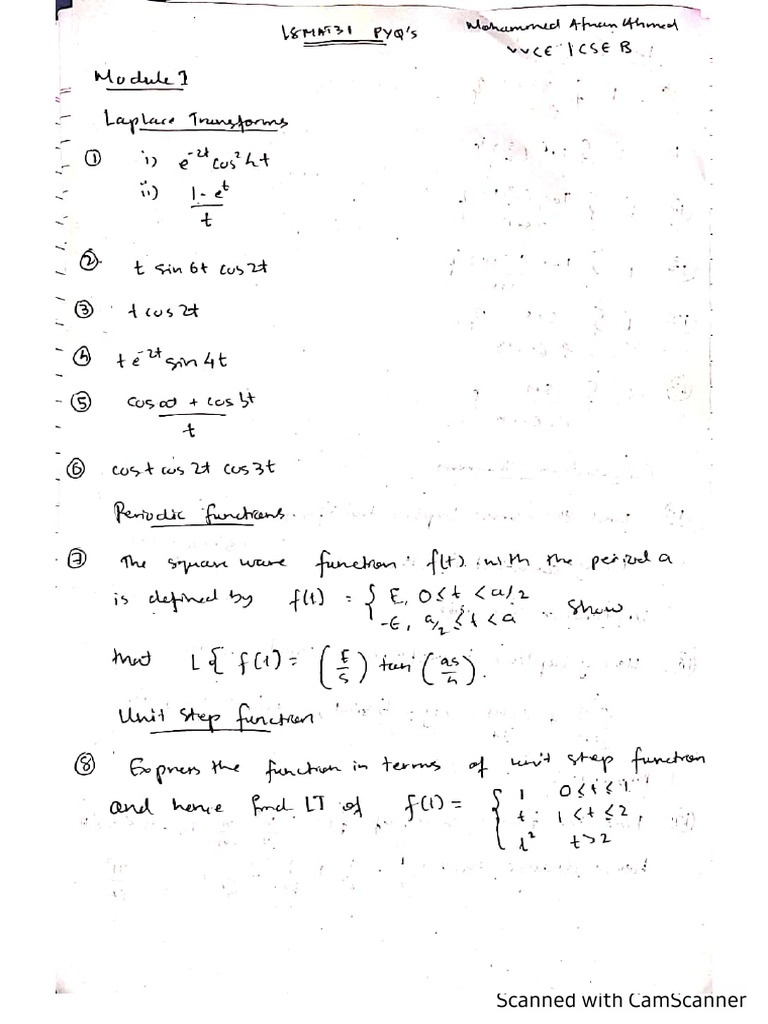 18MAT31 PYQ's
Mohammed Afnan Ahmed
VVCE ICSE B
Module 1
Laplace Transforms
① i) e^-2t cos²4t
ii) 1 - e^t / t
② t sin 6t cos 2t
③ t cos 2t
④ t e^-2t sin 4t
⑤ + cos 3t / t
⑥ cos t cos 2t cos 3t
Periodic functions.
⑦ The square wave function f(t) with the period a
is defined by f(t) = { E, 0 ≤ t < a/2
-E, a/2 ≤ t < a Show
that L{ f(t) = (E/s) tan (as/4).
Unit step function
⑧ Express the function in terms of unit step function
and hence find LT of f(t) = { 1 0 < t ≤ 1
t 1 < t ≤ 2,
t² t > 2
Scanned with CamScanner